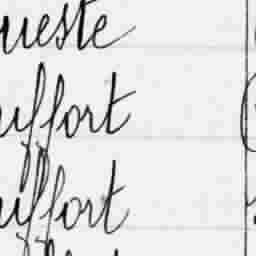 ueste
uffort
uffort